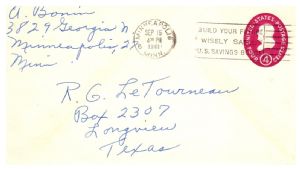 A. Bonin
3829 Georgia N
Minneapolis, 
Minn
MINNEAPOLIS
SEP 15
4 PM
MINN.
BUILD YOUR F
WISELY SA
U.S. SAVINGS B
UNITED STATES POSTAGE
4
R. G. LeTourneau
Box 2307
Longview
Texas